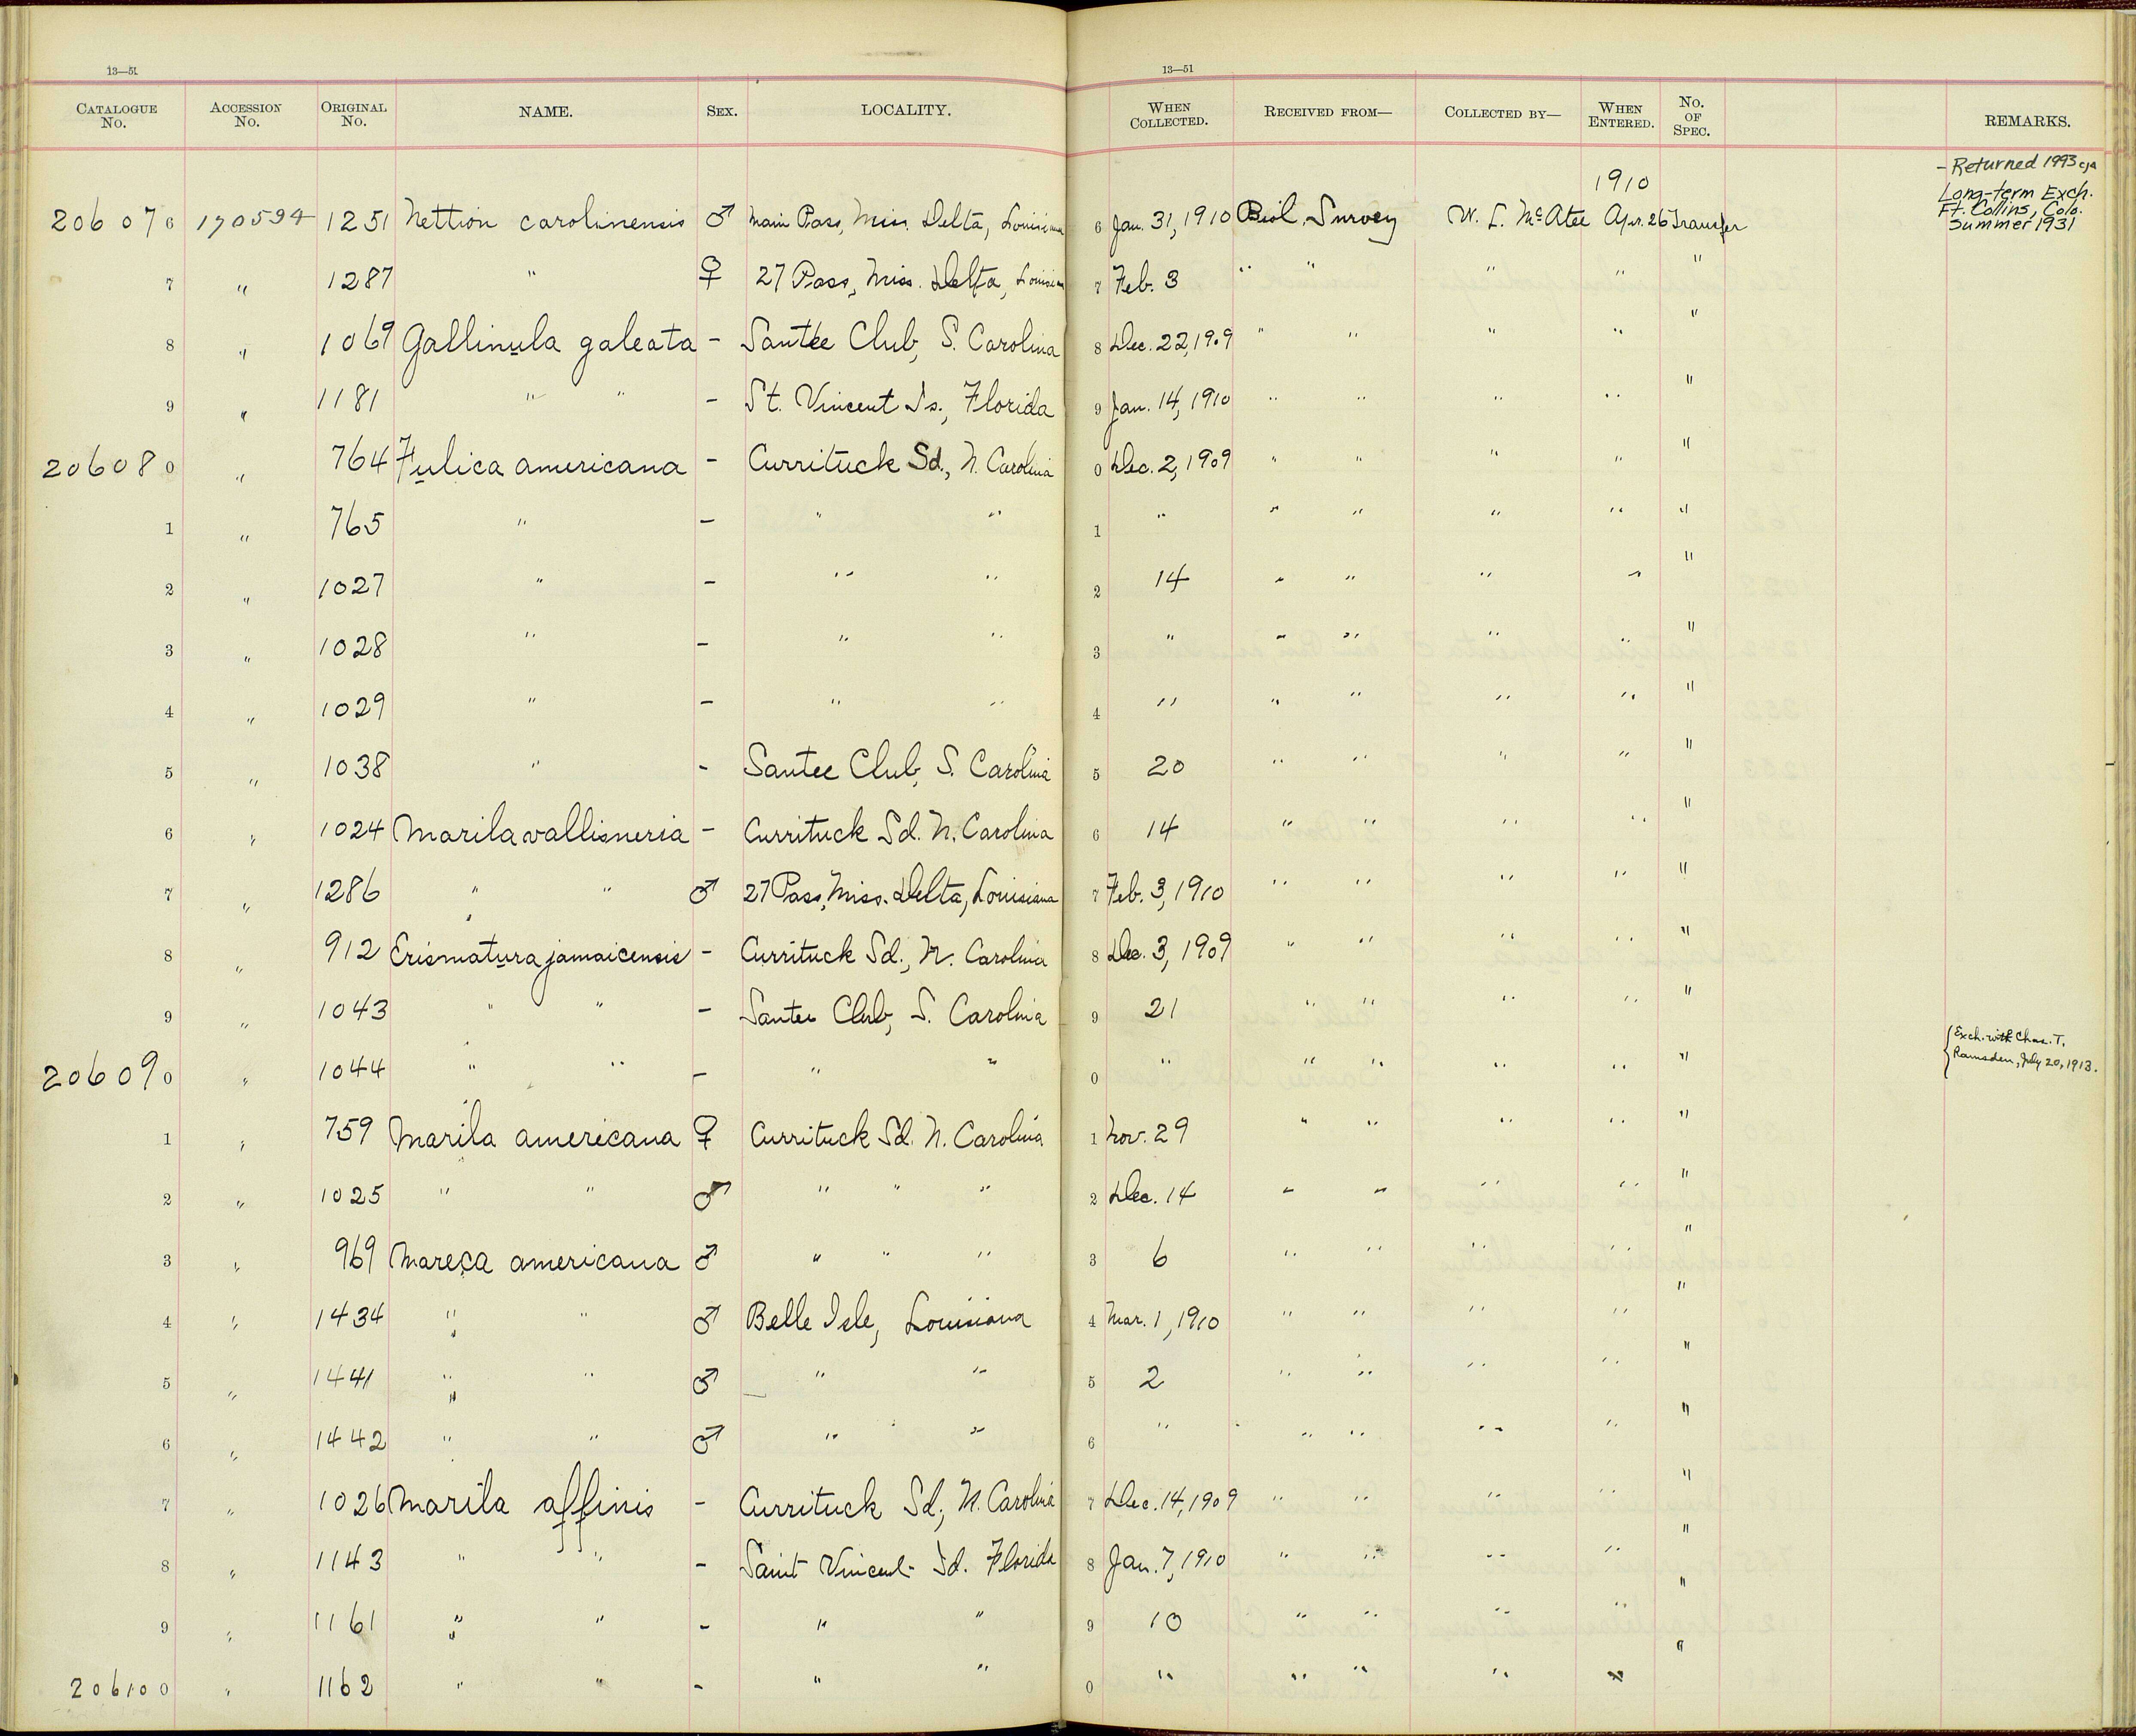 13—51 13—51
CATALOGUE No. ACCESSION No. ORIGINAL No. NAME. SEX. LOCALITY. WHEN COLLECTED. RECEIVED FROM— COLLECTED BY— WHEN ENTERED. No. OF SPEC. REMARKS.
- Returned 1993
1910 Long-term Exch.
Ft. Collins, Colo.
Summer 1931
206076 170594 1251 Nettion carolinensis ♂ Main Pass, Miss. Delta, Louisiana 6 Jan. 31, 1910 Biol. Survey W. L. McAtee Apr. 26 Transfer
7 " 1287 " ♀ 27 Pass, Miss. Delta, Louisiana 7 Feb. 3 " " " " "
8 " 1069 Gallinula galeata - Santee Club, S. Carolina 8 Dec. 22, 1909 " " " " "
9 " 1181 " " - St. Vincent Is., Florida 9 Jan. 14, 1910 " " " " "
206080 " 764 Fulica americana - Currituck Sd., N. Carolina 0 Dec. 2, 1909 " " " " "
1 " 765 " - " " 1 " " " " " "
2 " 1027 " - " " 2 14 " " " " "
3 " 1028 " - " " 3 " " " " " "
4 " 1029 " - " " 4 " " " " " "
5 " 1038 " - Santee Club, S. Carolina 5 20 " " " " "
6 " 1024 Marila vallisneria - Currituck Sd. N. Carolina 6 14 " " " " "
7 " 1286 " " ♂ 27 Pass, Miss. Delta, Louisiana 7 Feb. 3, 1910 " " " " "
8 " 912 Erismatura jamaicensis - Currituck Sd., N. Carolina 8 Dec. 3, 1909 " " " " "
9 " 1043 " " - Santee Club, S. Carolina 9 21 " " " " "
206090 " 1044 " " - " " 0 " " " " " " { Exch. with Chas. T.
Ramsden, July 20, 1913.
1 " 759 Marila americana ♀ Currituck Sd. N. Carolina 1 Nov. 29 " " " " "
2 " 1025 " " ♂ " " " 2 Dec. 14 " " " " "
3 " 969 Mareca americana ♂ " " " 3 6 " " " " "
4 " 1434 " " ♂ Belle Isle, Louisiana 4 Mar. 1, 1910 " " " " "
5 " 1441 " " ♂ " " 5 2 " " " " "
6 " 1442 " " ♂ " " 6 " " " " " "
7 " 1026 Marila affinis - Currituck Sd., N. Carolina 7 Dec. 14, 1909 " " " " "
8 " 1143 " " - Saint Vincent Id. Florida 8 Jan. 7, 1910 " " " " "
9 " 1161 " " - " " 9 10 " " " " "
206100 " 1162 " " - " " 0 " " " " "